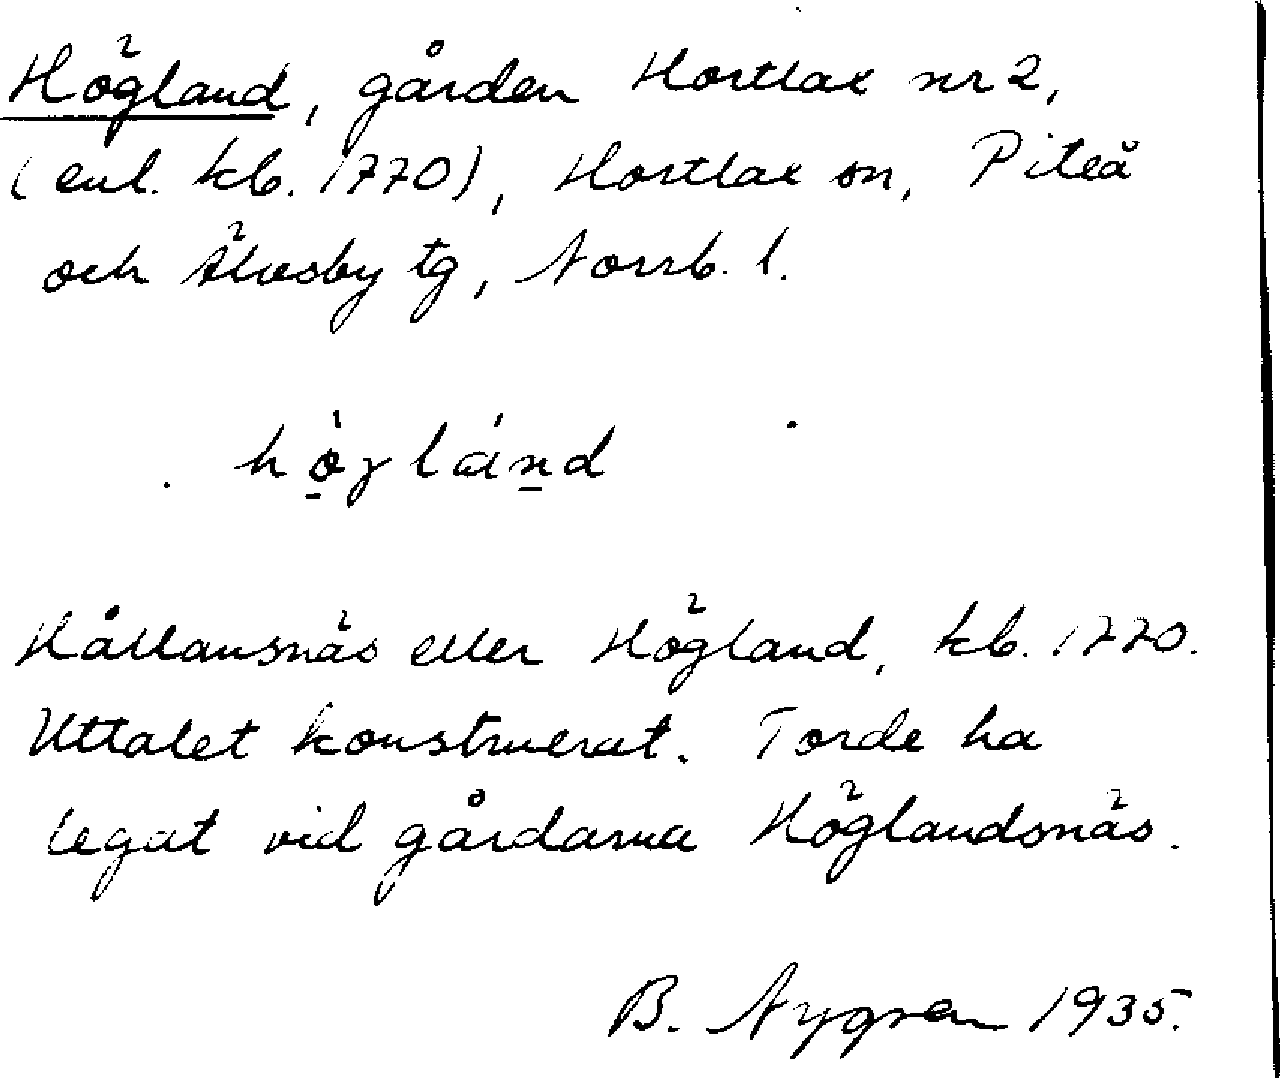 Högland, gården Hortlax nr 2,
(enl. kb. 1770), Hortlax sn, Piteå
och Älvsby tg, Norrb. l.
hö̀glánd
Hållansnäs eller Högland, kb. 1770.
Uttalet konstruerat. Torde ha
legat vid gårdarna Höglandsnäs.
B. Nygren 1935.